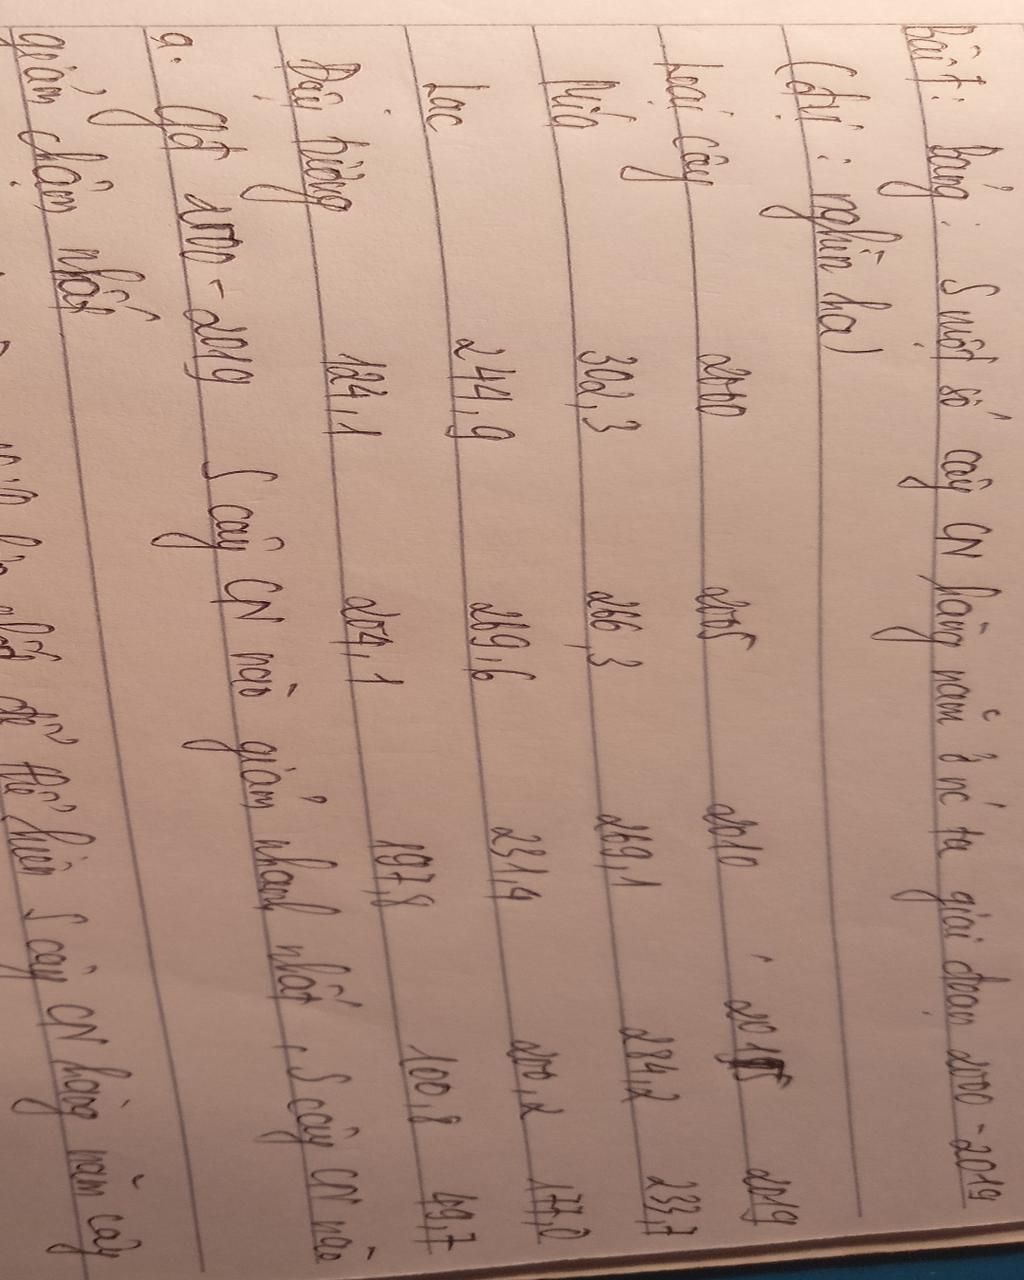 Bài 7: Bảng: S một số cây CN hàng năm ở nc ta giai đoạn 2000 - 2019
(đvi: nghìn ha)
Loại cây 2000 2005 2010 2015 2019
Mía 302,3 266,3 269,1 284,2 233,7
Lạc 244,9 269,6 231,4 200,2 177,0
Đậu tương 124,1 204,1 197,8 100,8 49,7
a. Gđ 2000 - 2019 S cây CN nào giảm nhanh nhất, S cây CN nào
giảm chậm nhất
nhất để thể hiện S cây CN hàng năm cây